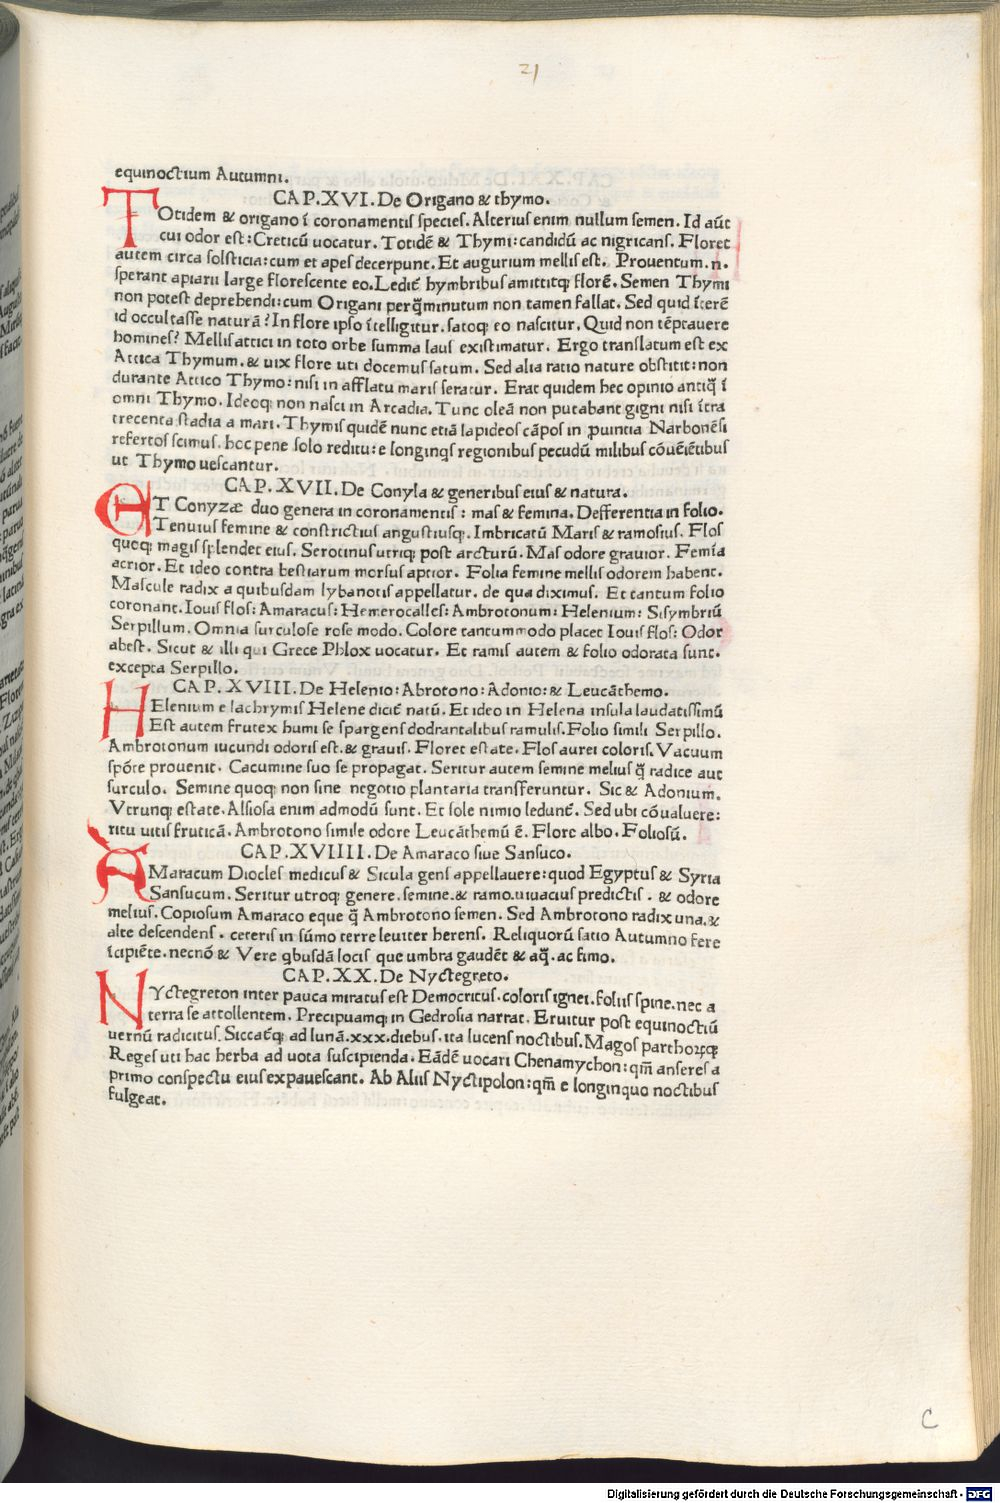 21
equinoctium Autumni.
CAP.XVI.De Origano & thymo.
TOtidem & origano ī coronamentis species. Alterius enim nullum semen. Id aūt
cui odor est: Creticū uocatur. Totidē & Thymi: candidū ac nigricans. Floret
autem circa solsticia: cum et apes decerpunt. Et augurium mellis est. Prouentum.n.
sperant apiarii large florescente eo. Ledit᷑ hymbribus amittitq; florē. Semen Thymi
non potest deprehendi: cum Origani perq̄minutum non tamen fallat. Sed quid īterē
id occultasse naturā? In flore ipso ītelligitur. satoq; eo nascitur. Quid non tēptauere
homines? Mellis attici in toto orbe summa laus existimatur. Ergo translatum est ex
Attica Thymum. & uix flore uti docemus satum. Sed alia ratio nature obstitit: non
durante Attico Thymo: nisi in afflatu maris seratur. Erat quidem hec opinio antiq̄ ī
omni Thymo. Ideoq; non nasci in Arcadia. Tunc oleā non putabant gigni nisi ītra
trecenta stadia a mari. Thymis quidē nunc etiā lapideos cāpos in puintia Narbonēsi
refertos scimus. hoc pene solo reditu: e longinqs regionibus pecudū milibus cōuēiētibus
ut Thymo uescantur.
CAP. XVII. De Conyla & generibus eius & natura.
ET Conyzæ duo genera in coronamentis: mas & femina. Defferentia in folio.
Tenuius femine & constrictius angustiusq;. Imbricatū Maris & ramosius. Flos
quoq; magis splendet eius. Serotinus utriq; post arcturū. Mas odore grauior. Femīa
acrior. Et ideo contra bestiarum morsus aptior. Folia femine mellis odorem habent.
Mascule radix a quibusdam lybanotis appellatur. de qua diximus. Et tantum folio
coronant. Iouis flos: Amaracus: Hemerocalles: Ambrotonum: Helenium: Sisymbriū
Serpillum. Omnia surculose rose modo. Colore tantummodo placet Iouis flos: Odor
abest. Sicut & illi qui Grece Phlox uocatur. Et ramis autem & folio odorata sunt.
excepta Serpillo.
CAP. XVIII. De Helenio: Abrotono: Adonio: & Leucāthemo.
HElenium e lachrymis Helene dicit᷑ natū. Et ideo in Helena insula laudatissimū
Est autem frutex humi se spargens dodrantalibus ramulis. Folio simili Serpillo.
Ambrotonum iucundi odoris est. & grauis. Floret estate. Flos aurei coloris. Vacuum
spōte prouenit. Cacumine suo se propagat. Seritur autem semine melius q̄ radice aut
surculo. Semine quoq; non sine negotio plantaria transferuntur. Sic & Adonium.
Vtrunq; estate. Alsiosa enim admodū sunt. Et sole nimio ledunt᷑. Sed ubi cōualuere:
ritu uitis fruticā. Ambrotono simile odore Leucāthemū ē. Flore albo. Foliosū.
CAP.XVIIII.De Amaraco siue Sansuco.
AMaracum Diocles medicus & Sicula gens appellauere: quod Egyptus & Syria
Sansucum. Seritur utroq; genere. semine. & ramo. uiuacius predictis. & odore
melius. Copiosum Amaraco eque q̄ Ambrotono semen. Sed Ambrotono radix una. &
alte descendens. ceteris in sūmo terre leuiter herens. Reliquorū satio Autumno fere
īcipiēte. necnō & Vere qbusdā locis que umbra gaudēt & aq̄. ac fimo.
CAP.XX.De Nyctegreto.
NYctegreton inter pauca miratus est Democritus. coloris ignei. foliis spine. nec a
terra se attollentem. Precipuamq; in Gedrosia narrat. Eruitur post equinoctiū
uernū radicitus. Siccat᷑q; ad lunā.xxx.diebus. ita lucens noctibus. Magos parthoꝝq;
Reges uti hac herba ad uota suscipienda. Eādē uocari Chenamychon: qm̄ anseres a
primo conspectu eius expauescant. Ab Aliis Nyctipolon: qm̄ e longinquo noctibus
fulgeat.
C
Digitalisierung gefördert durch die Deutsche Forschungsgemeinschaft - DFG